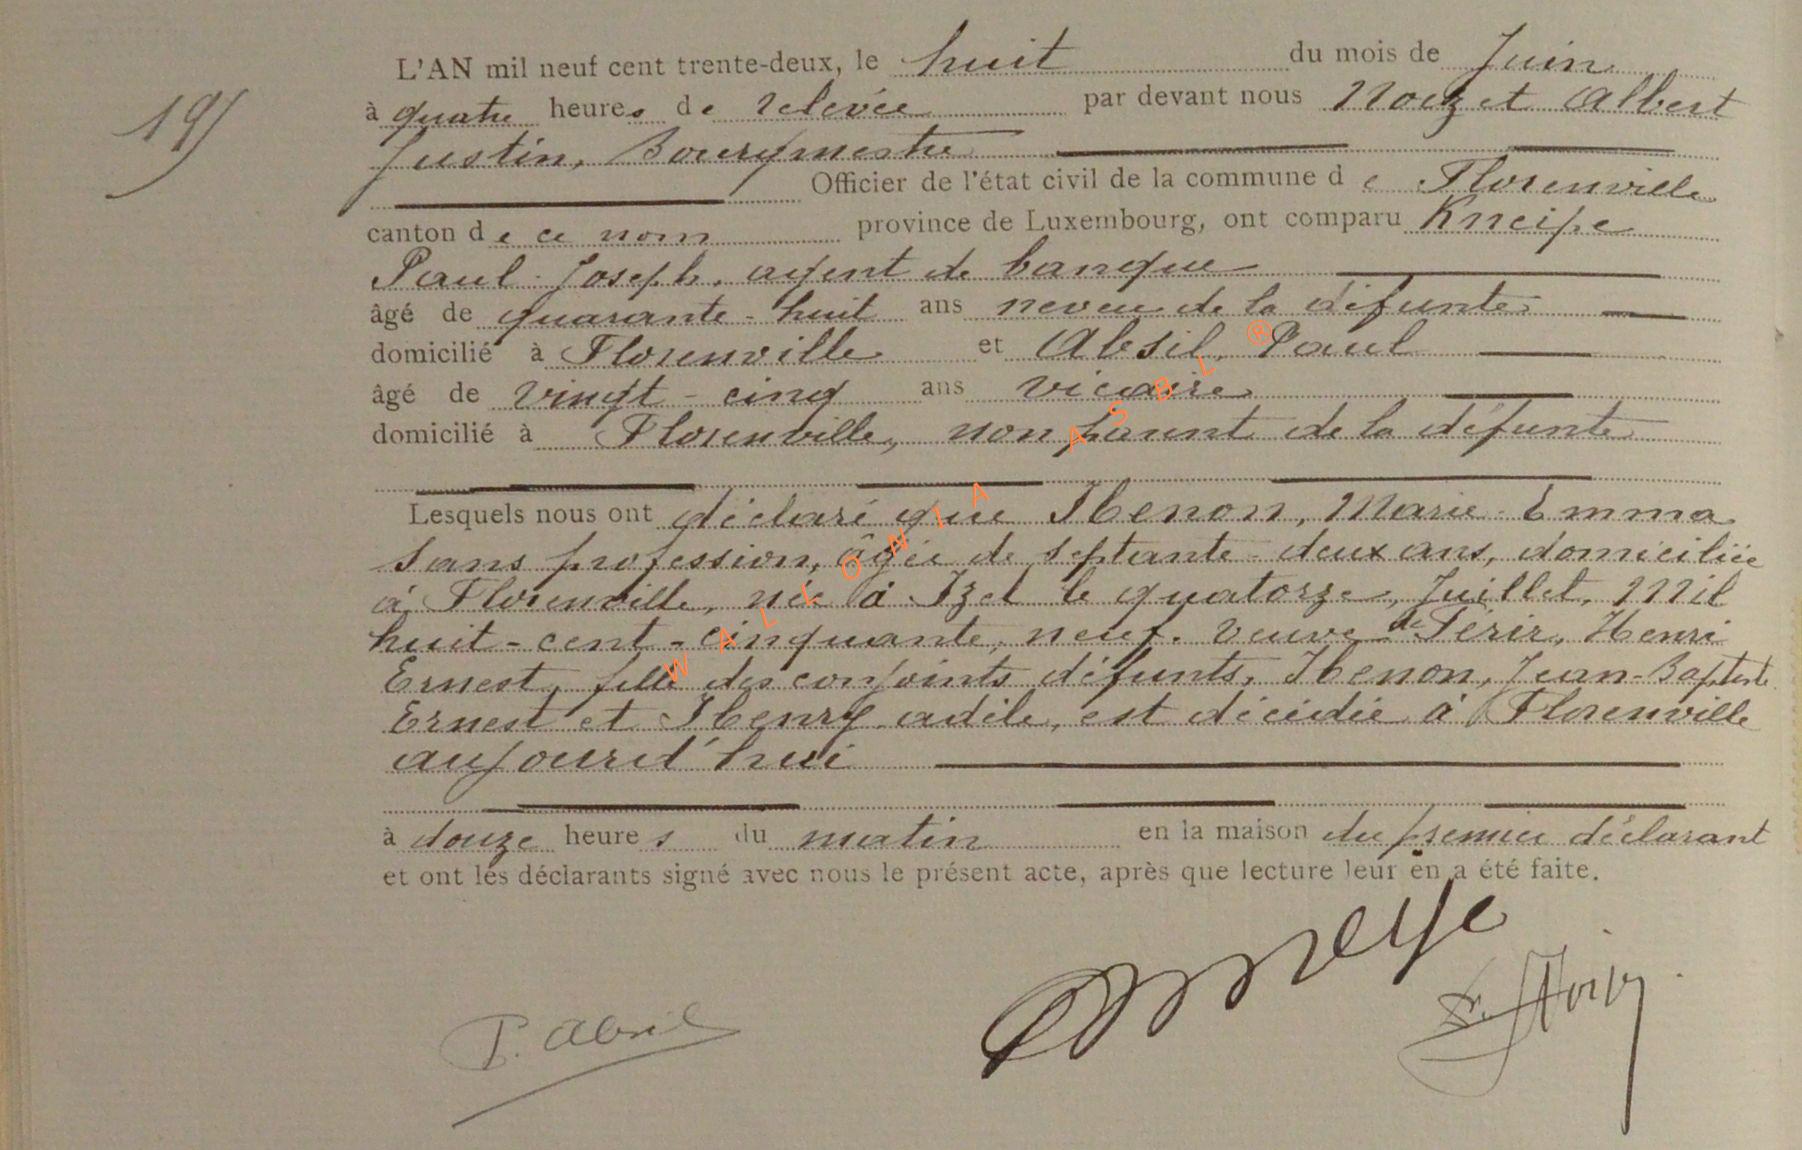 L'AN mil neuf cent trente-deux, le huit du mois de Juin
19)
à quatre heures de relevée par devant nous Noizet Albert
Justin, Bourgmestre
Officier de l'état civil de la commune de Florenville
canton de ce nom province de Luxembourg, ont comparu Kneipe
Paul-Joseph, agent de banque
âgé de quarante-huit ans neveu de la défunte
domicilié à Florenville et Absil, Paul
âgé de vingt-cinq ans vicaire
domicilié à Florenville, non parent de la défunte
Lesquels nous ont déclaré que Henon, Marie-Emma
sans profession, âgée de septante-deux ans, domiciliée
à Florenville, née à Izel le quatorze, Juillet, Mil
huit-cent-cinquante, neuf. Veuve de Périr, Henri
Ernest, fille des conjoints défunts, Henon, Jean-Baptiste
Ernest et Henry adèle, est décédée à Florenville
aujourd'hui
à douze heures du matin en la maison du premier déclarant
et ont les déclarants signé avec nous le présent acte, après que lecture leur en a été faite.
P. Absil
WALLONIA ASBL ®